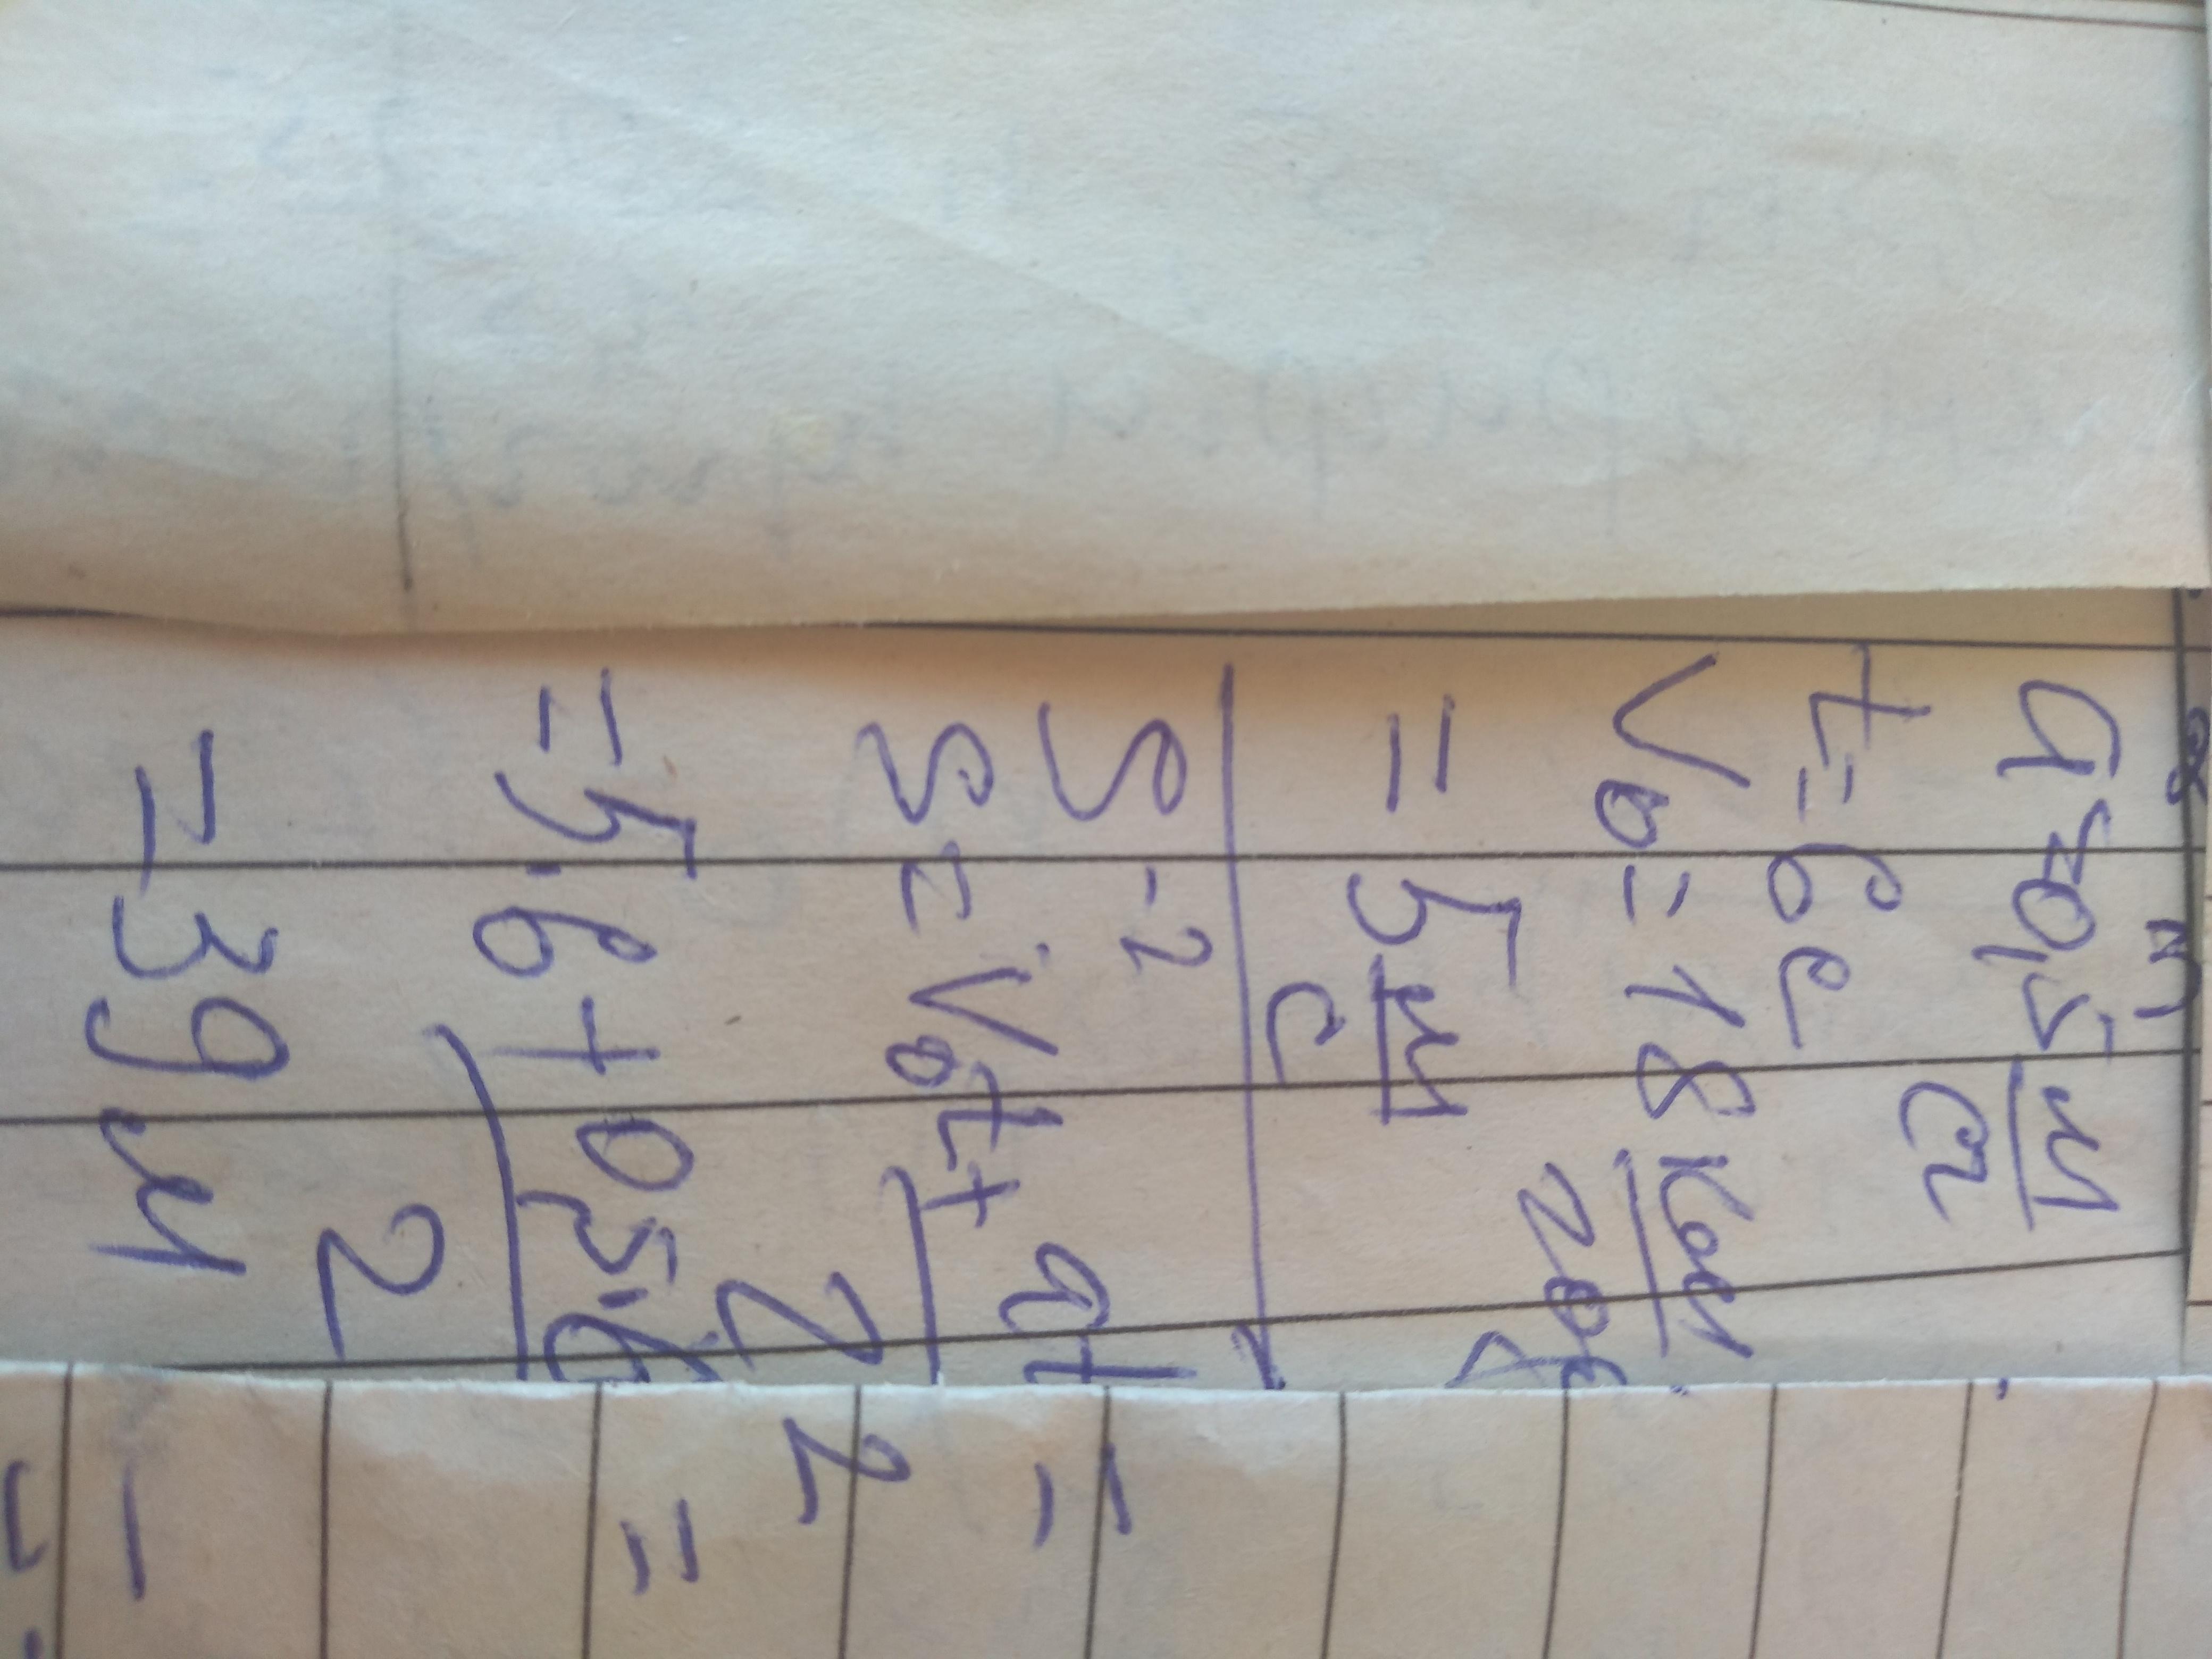 a=0,5 м/с²
t=6c
V₀=18 км/час
=5 м/с
S-?
S=V₀t+at²/2=
=5·6+0,5·6²/2=
=39м